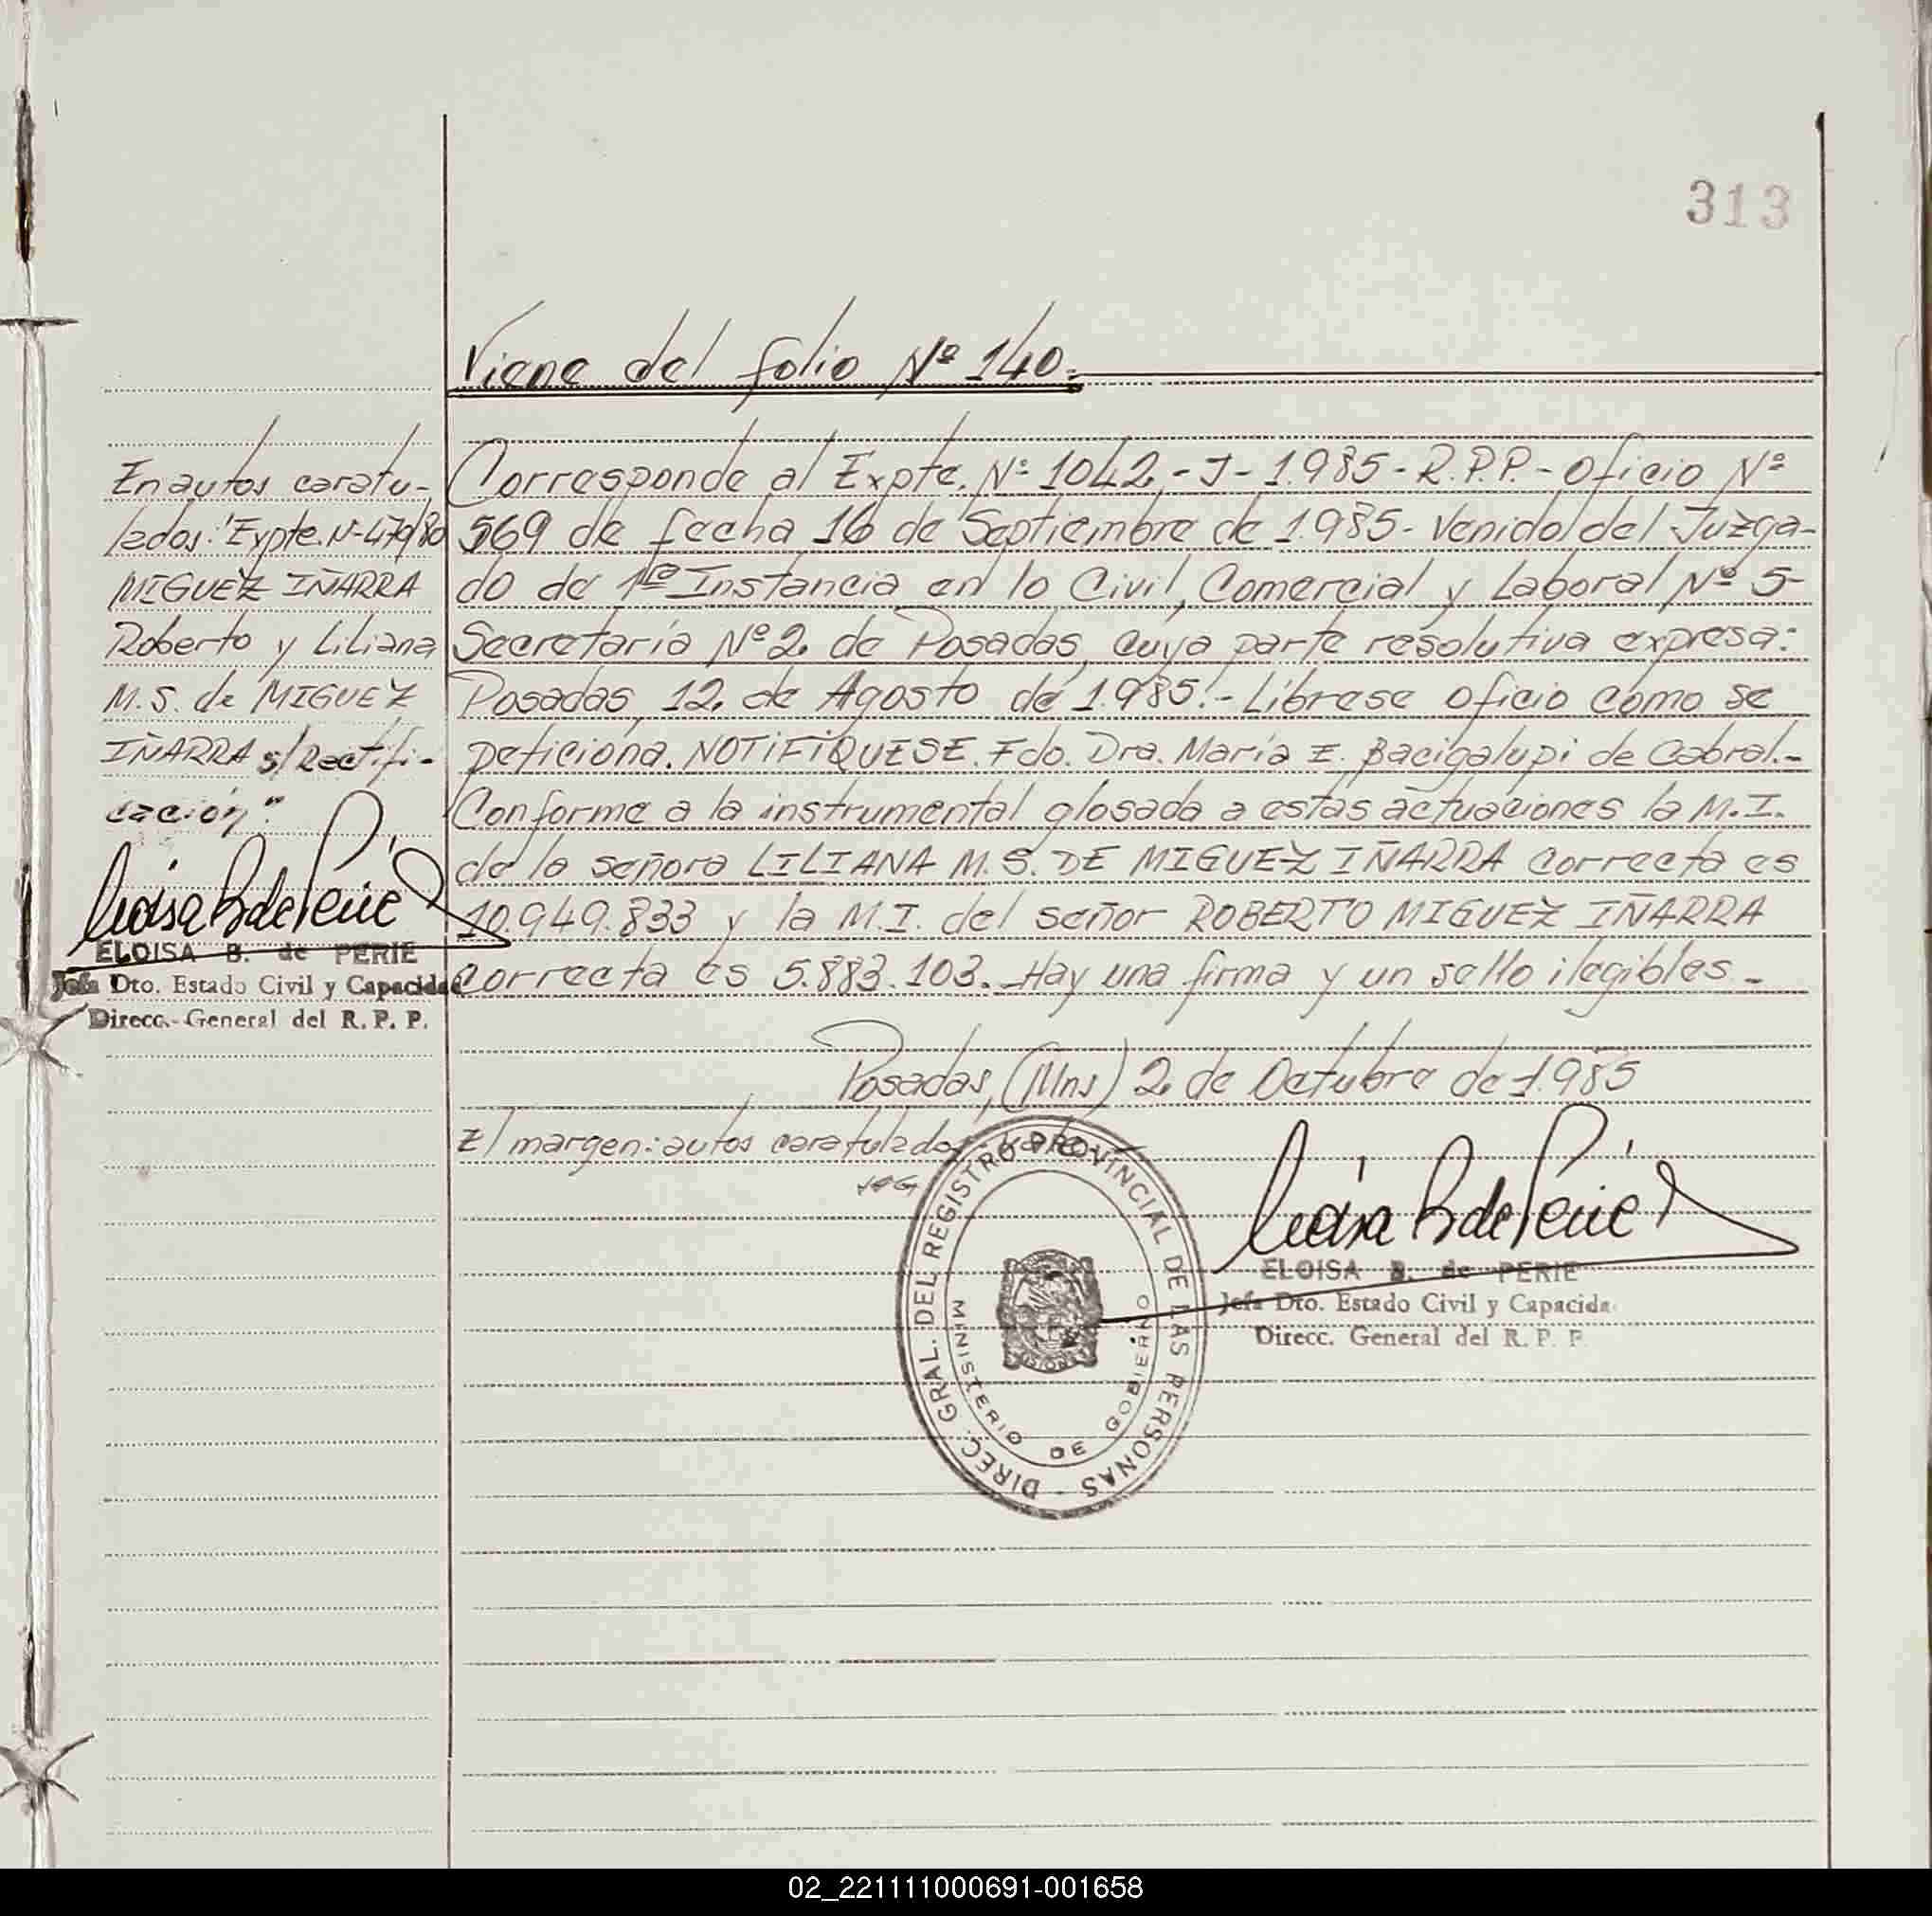 313
Viene del folio Nº 140.
En autos caratu-
lados: "Expte. Nº 479/80
MIGUEZ IÑARRA
Roberto y Liliana
M.S. de MIGUEZ
IÑARRA s/Rectifi-
cación"
ELOISA B. de PERIE
Jefa Dto. Estado Civil y Capacidad
Direcc. General del R. P. P.
Corresponde al Expte. Nº 1042,-J-1.985-R.P.P.- Oficio Nº
569 de fecha 16 de Septiembre de 1.985- Venido del Juzga-
do de 1ª Instancia en lo Civil, Comercial y Laboral Nº 5-
Secretaría Nº 2, de Posadas, cuya parte resolutiva expresa:
Posadas, 12, de Agosto de 1.985.- Líbrese oficio como se
peticiona. NOTIFÍQUESE. Fdo. Dra. María E. Bacigalupi de Cabral.-
Conforme a la instrumental glosada a estas actuaciones la M.I.
de la señora LILIANA M. S. DE MIGUEZ IÑARRA correcta es
10.949.833 y la M.I. del señor ROBERTO MIGUEZ IÑARRA
correcta es 5.883.103.- Hay una firma y un sello ilegibles.-
Posadas, (Mns) 2, de Octubre de 1.985
E/ margen: autos caratulados: Vale.-
DIREC. GRAL. DEL REGISTRO PROVINCIAL DE LAS PERSONAS -
MINISTERIO DE GOBIERNO
ELOISA B. de PERIE
Jefa Dto. Estado Civil y Capacida
Direcc. General del R. P. P
02_221111000691-001658